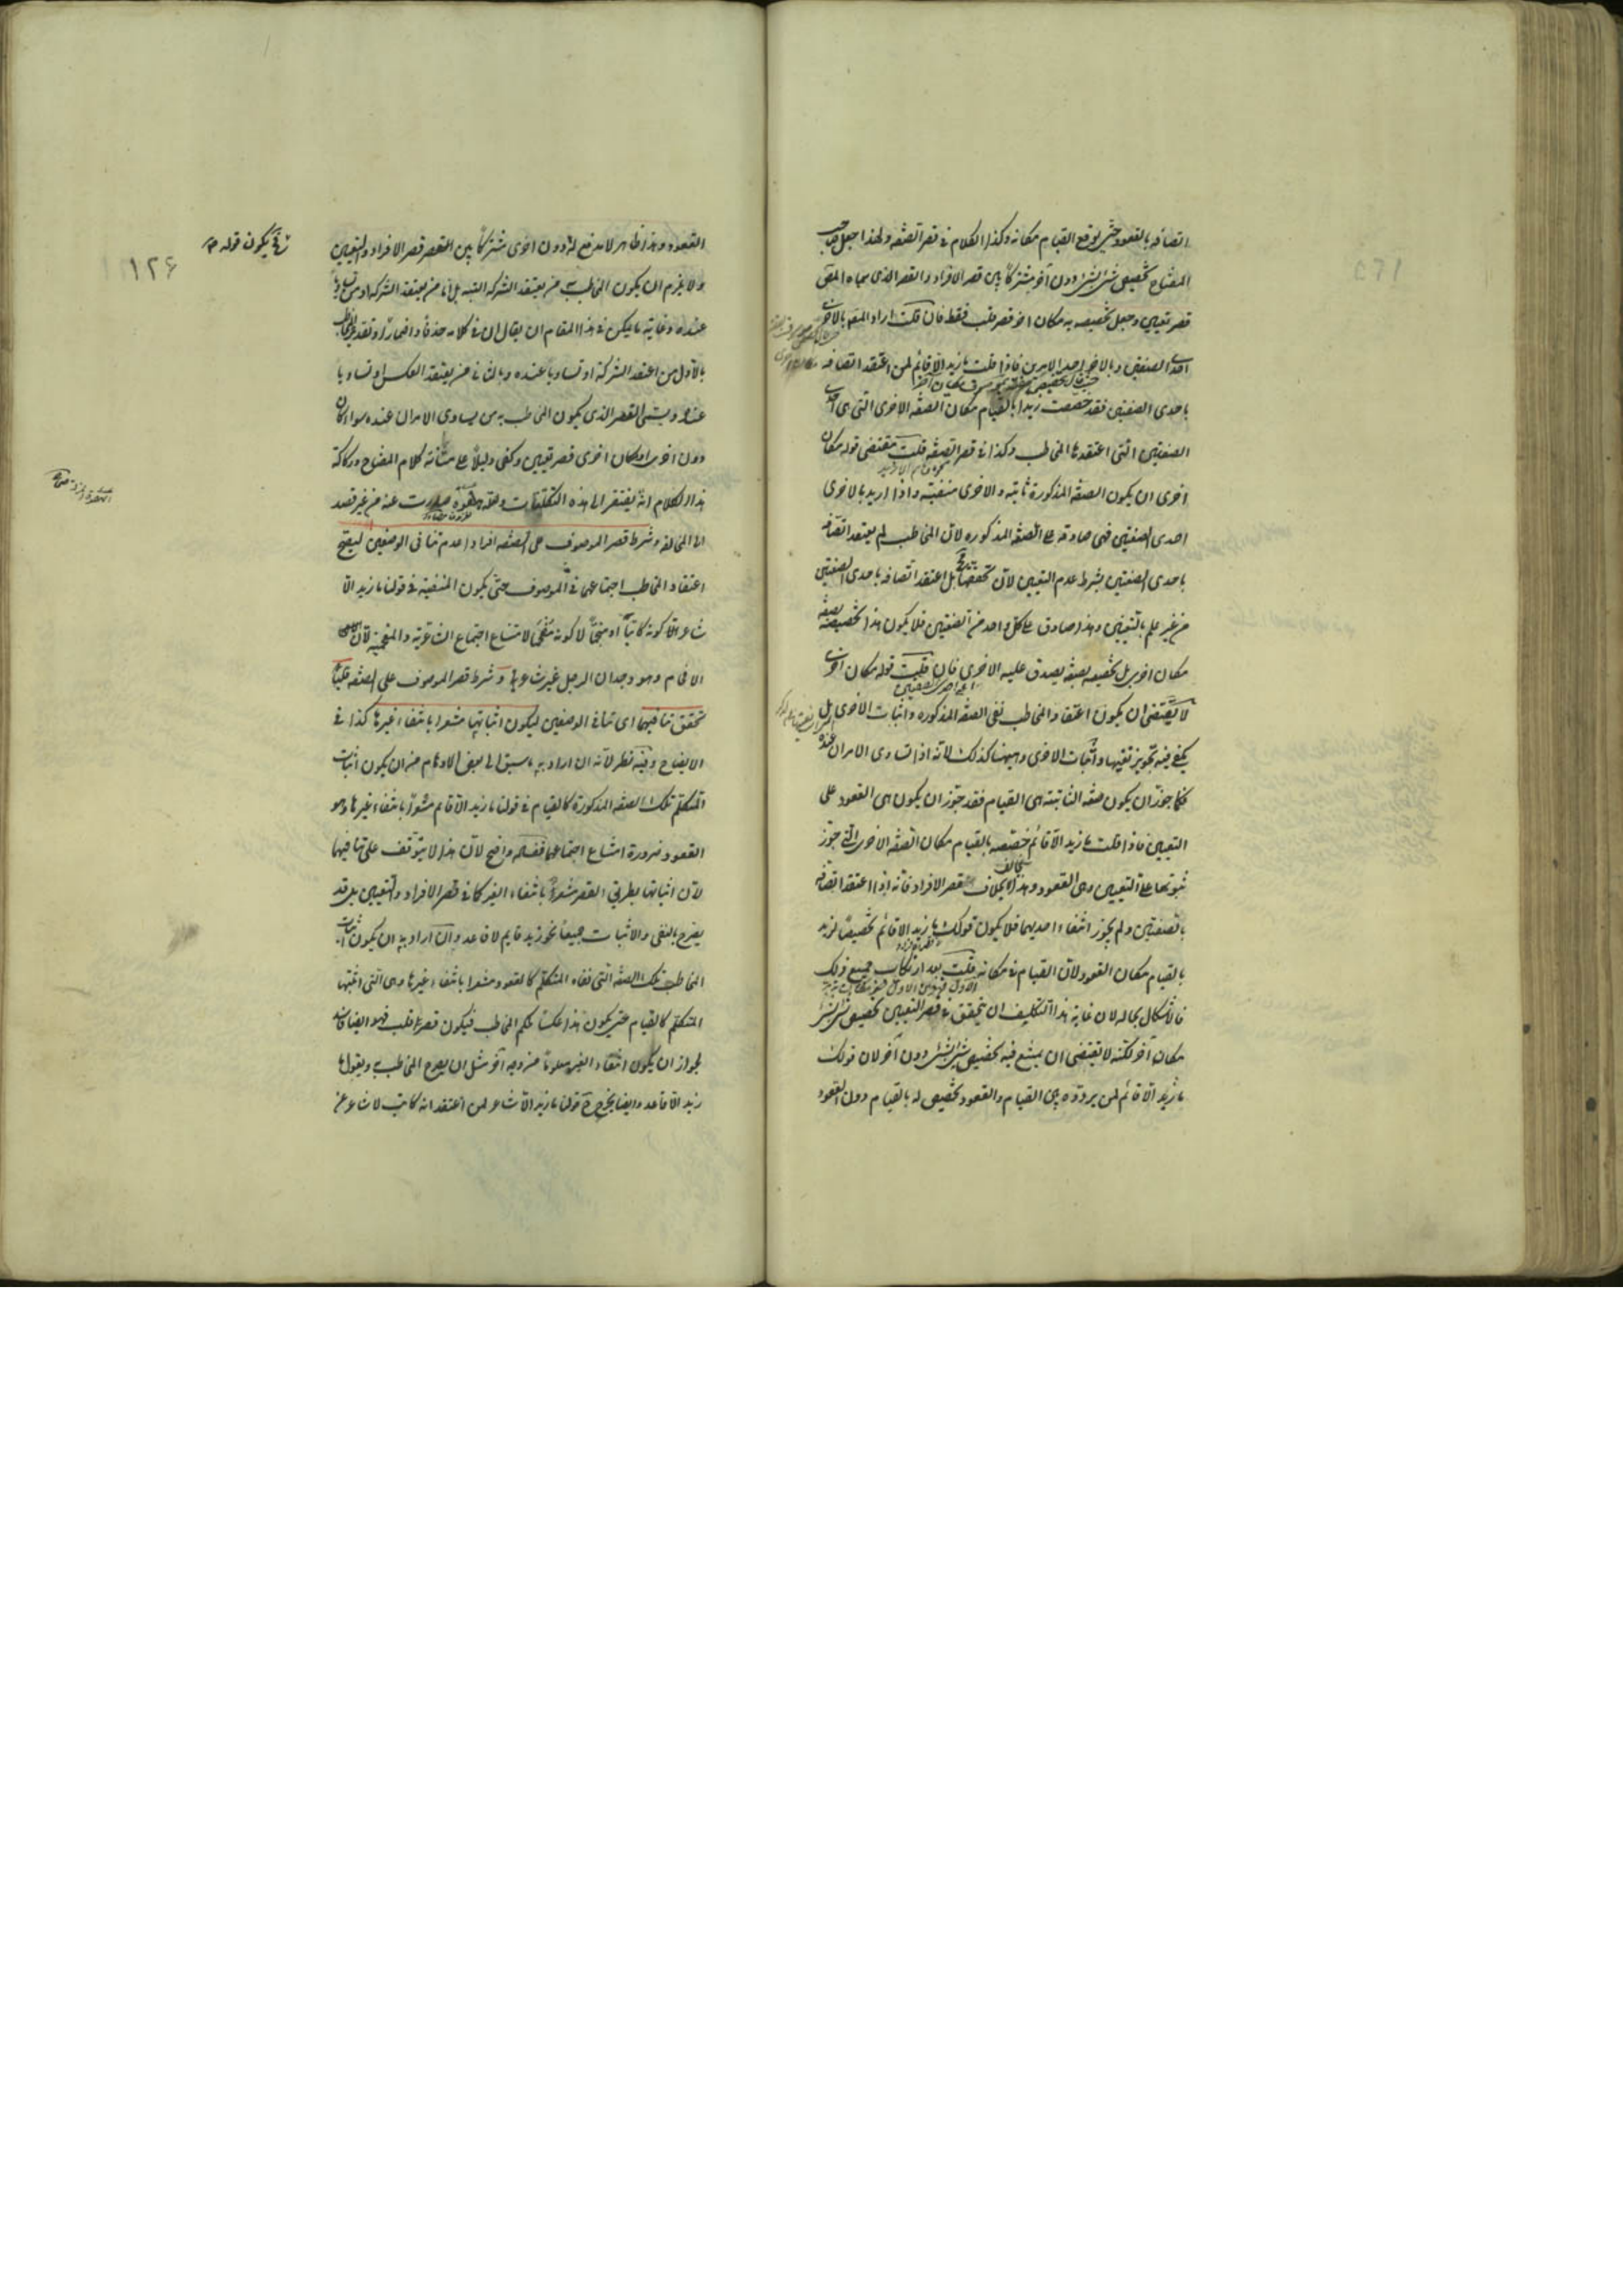 اتصافه بالقعود حتى يوقع القيام مكانه وكذا الكلام في قصر الصفة ولهذا جعل صاحب
المفتاح تخصيص شئ بشئ دون آخر مشتركا بين قصر الافراد والقصر الذى سماه المص
قصر تعيين وجعل تخصيصه به مكان اخر قصر قلب فقط فان قلت اراد المص بالاخرى
احدى الصفتين وبالاخر احد الامرين فاذا قلت ما زيد الا قائم لمن اعتقد اتصافه
باحدى الصفتين فقد خصصت زيدا بالقيام مكان الصفة الاخرى التى هى احدى
الصفتين التى اعتقدها المخاطب وكذا في قصر الصفة قلت مقتضى قوله مكان
اخرى ان يكون الصفة المذكورة ثابتة والاخرى منفية واذا اريد بالاخرى
احدى الصفتين فهى صادقة على الصفة المذكوره لان المخاطب لم يعتقد اتصافه
باحدى الصفتين بشرط عدم التعيين لان بل اعتقد اتصافه باحدى الصفتين
من غير علم بالتعيين وهذا صادق على كل واحد من الصفتين فلا يكون هذا تخصيصه بصفة
مكان اخرى بل تخصيصه بصفة يصدق عليه الاخرى فان قلت قوله مكان اخرى
لا يقتضى ان يكون اعتقاد المخاطب نفى الصفة المذكوره واثبات الاخرى بل
يكفى فيه تجويز نفيها واثبات الاخرى وهيهنا كذلك لانه اذا تساوى الامران عنده
فكما جوز ان يكون صفة الثابتة هى القيام فقد جوز ان يكون هى القعود على
التعيين فاذا قلت ما زيد الا قائم خصصته بالقيام مكان الصفة الاخرى التى جوز
ثبوتها على التعيين وهى القعود وهذا بخلاف قصر الافراد فانه اذا اعتقد اتصافه
بالصفتين ولم يجوز انتفاء احديهما فلا يكون قولك ما زيد الا قائم تخصيصا لزيد
بالقيام مكان القعود لان القيام في مكانه قلت بعد ارتكاب جميع ذلك
فالاشكال بحاله لان غاية هذا التكليف ان يتحقق في قصر التعيين تخصيص شئ بشئ
مكان آخر لكنه لا يقتضى ان يمتنع فيه تخصيص شئ بشئ دون آخر لان قولك
ما زيد الا قائم لمن يردده بين القيام والقعود تخصيص له بالقيام دون القعود
١٢۶
يكون قوله
القعود وهذا ظاهر لا مدفع له ودون اخرى مشتركا بين القصر قصر الافراد والتعيين
ولا يلزم ان يكون المخاطب من يعتقد الشركة البتة بل اما من يعتقد الشركة او من تساويا
عنده وغاية ما يمكن في هذا المقام ان يقال ان في كلامه حذفا واضمارا وتقديره المخاطب
بالاول من اعتقد الشركة او تساويا عنده وبالثانى من يعتقد العكس او تساويا
عنده ويسمى القصر الذى يكون المخاطب به من يساوى الامران عنده سواء كان
دون اخرى او مكان اخرى قصر تعيين وكفى دليلا على متانة كلام المفتاح وركاكة
هذا الكلام انه يفتقر الى هذه التكلفات ولعله هفوة صدرت عنه من غير قصد
الى المخالفة وشرط قصر الموصوف على الصفة افرادا عدم تنافى الوصفين ليصح
اعتقاد المخاطب اجتماعهما في الموصوف حتى يكون المنفية في قولنا ما زيد الا
شاعر الا كونه كاتبا او منجما لا كونه مفحما لامتناع اجتماع الشاعرية والمفحمية لان
الافحام وهو وجدان الرجل غير شاعر وشرط قصر الموصوف على الصفة قلبا
تحقق تنافيهما اى تنافى الوصفين ليكون اثباتها مشعرا بانتفاء غيرها كذا في
الايضاح وفيه نظر لانه ان اراد به ما سبق الى بعض الاوهام من ان يكون اثبات
المتكلم تلك الصفة المذكورة كالقيام في قولنا ما زيد الا قائم مشعرا بانتفاء غيرها وهو
القعود ضرورة امتناع اجتماعهما ففساده واضح لان هذا لا يتوقف على تنافيهما
لان اثباتها بطريق القصر مشعر بانتفاء الغير كما في قصر الافراد والتعيين بل قد
يصرح بالنفى والاثبات جميعا نحو زيد قايم لا قاعد وان اراد به ان يكون اثبات
المخاطب تلك الصفة التى نفاه المتكلم كالقعود مشعرا بانتفاء غيرها وهى التى اثبتها
المتكلم كالقيام حتى يكون هذا عكسا لحكم المخاطب فيكون قصر قلب فهو ايضا فاسد
لجواز ان يكون انتفاء الغير معلوما من وجه آخر مثل ان يصرح المخاطب به ويقول ما
زيد الا قاعد وايضا يخرج ح قولنا ما زيد الا شاعر لمن اعتقد انه كاتب لا شاعر عن